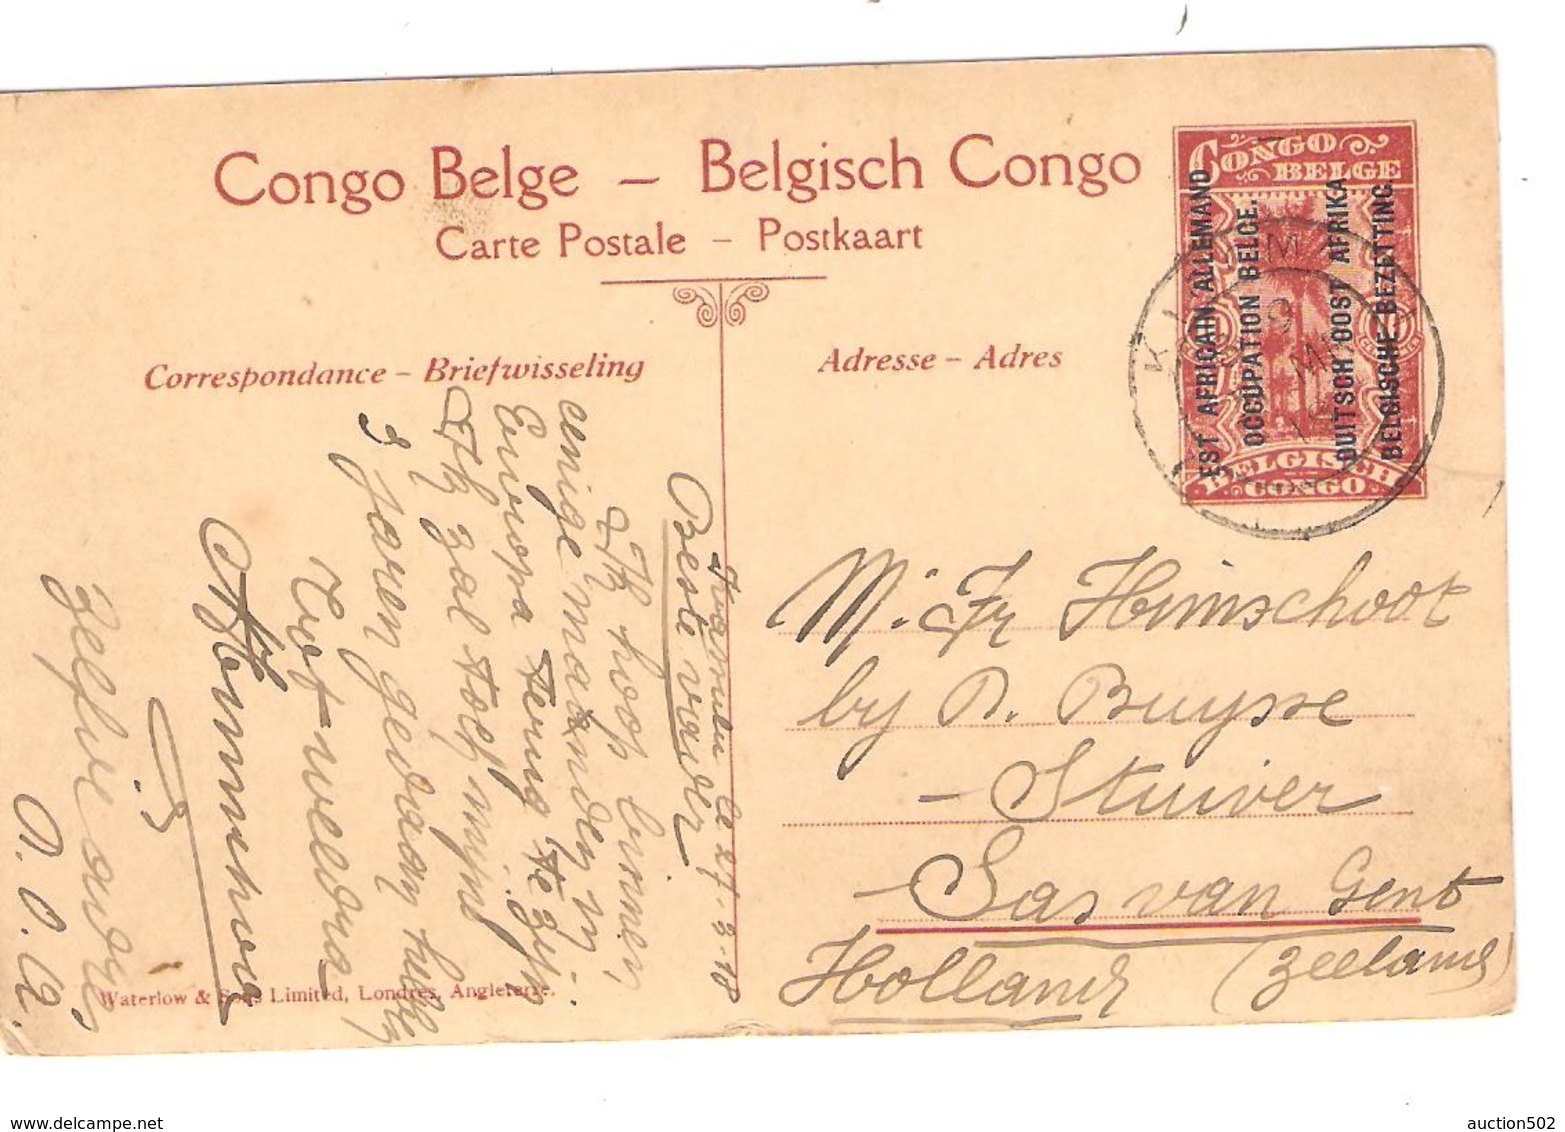 Congo Belge – Belgisch Congo
Carte Postale – Postkaart
CONGO BELGE
EST AFRICAIN ALLEMAND
OCCUPATION BELGE.
DUITSCH OOST AFRIKA
BELGISCHE BEZETTING.
BELGISCH CONGO
Correspondance – Briefwisseling
Adresse – Adres
27.3.18
Beste vader
Ik hoop binnen
eenige maanden in
Europa terug te zijn
Ik zal toch mijne
3 jaren gedaan hebben
Tot weldra
Zelfde adres
O.O.A.
M. Fr Himschoot
by D. Buysse
– Stuiver
Sas van Gent
Holland (Zeeland)
Waterlow & Sons Limited, Londres, Angleterre.
www.delcampe.net
auction502